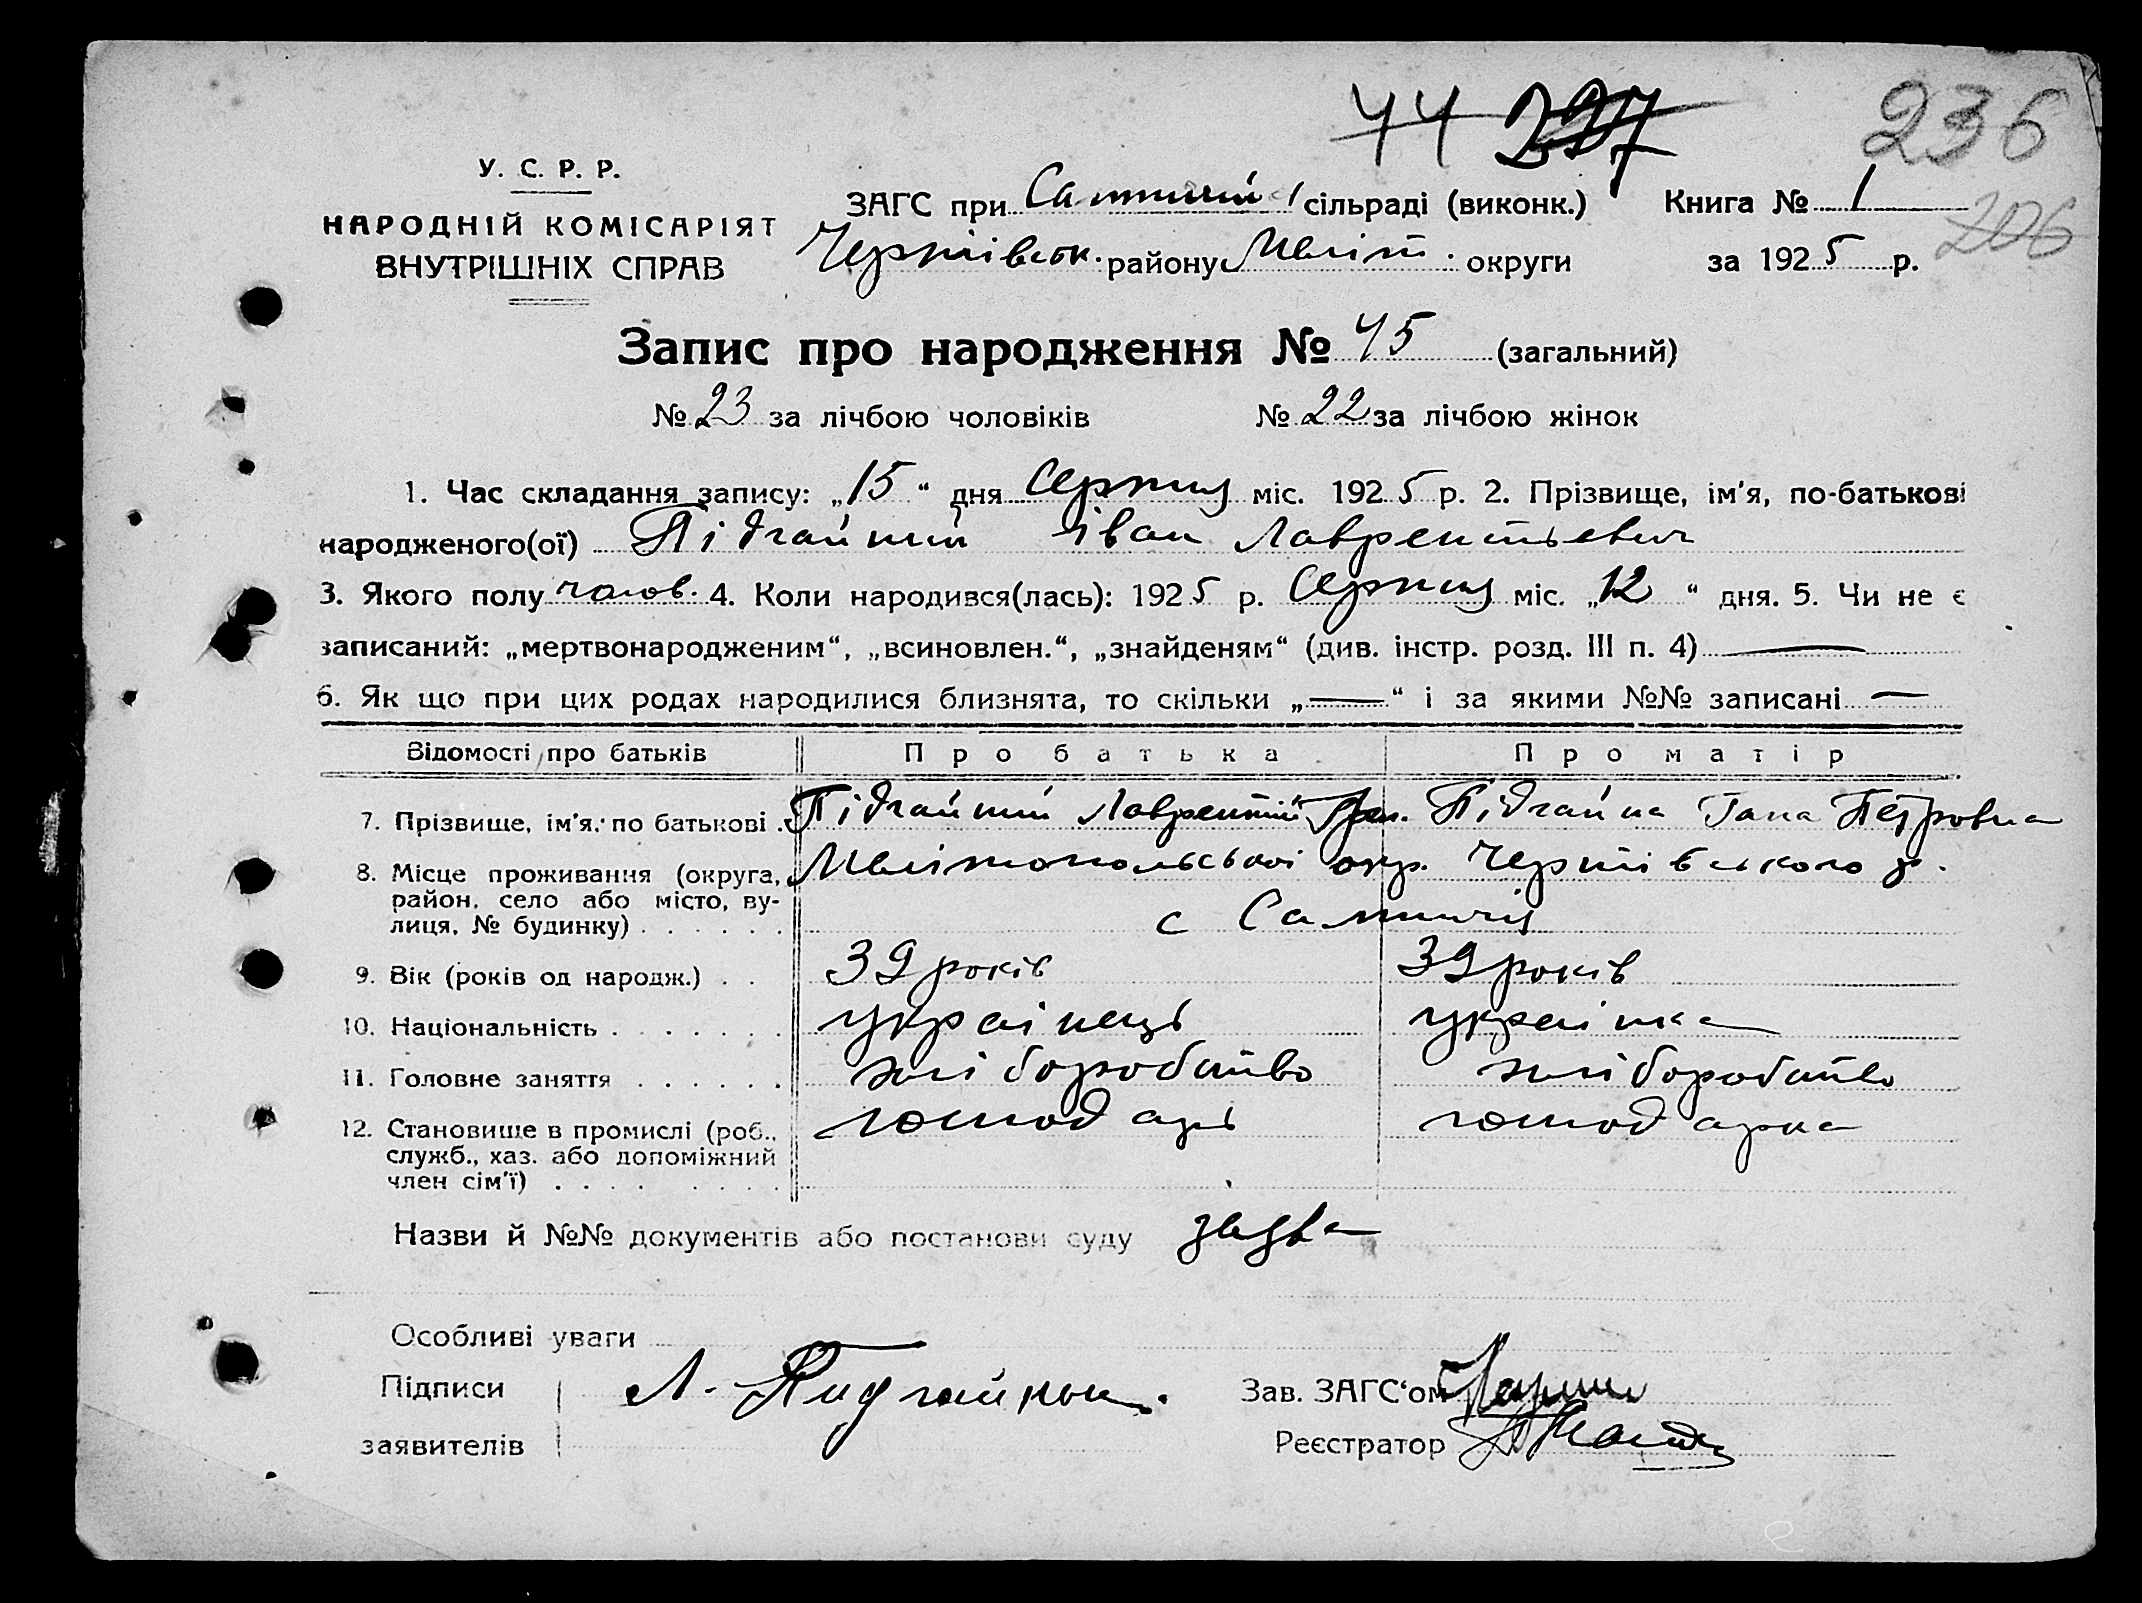 44 227 236
У. С. Р. Р.
НАРОДНІЙ КОМІСАРІЯТ
ВНУТРІШНІХ СПРАВ
ЗАГС при сільраді (виконк.) Книга № 1
206
району Меліт. округи за 1925 р.
Запис про народження № 45 (загальний)
№ 23 за лічбою чоловіків № 22 за лічбою жінок
1. Час складання запису: „15“ дня Серпня міс. 1925 р. 2. Прізвище, ім'я, по-батькові
народженого(ої) Підгайний Іван Лаврентьевич
3. Якого полу чолов. 4. Коли народився(лась): 1925 р. Серпня міс. „12“ дня. 5. Чи не є
записаний: „мертвонародженим“, „всиновлен.“, „знайденям“ (див. інстр. розд. III п. 4) —
6. Як що при цих родах народилися близнята, то скільки „—“ і за якими №№ записані —
Відомості про батьків Про батька Про матір
7. Прізвище, ім'я, по батькові Підгайний Лаврентій Підгайна Гана Петровна
8. Місце проживання (округа, Мелітопольської окр. р.
район, село або місто, ву-
лиця, № будинку) с
9. Вік (років од народж.) 39 років 39 років
10. Національність українець українка
11. Головне заняття хліборобство хліборобство
12. Становище в промислі (роб., господарь господарка
служб., хаз. або допоміжний
член сім'ї)
Назви й №№ документів або постанови суду заява
Особливі уваги
Підписи Л. Зав. ЗАГС'ом
заявителів Реєстратор